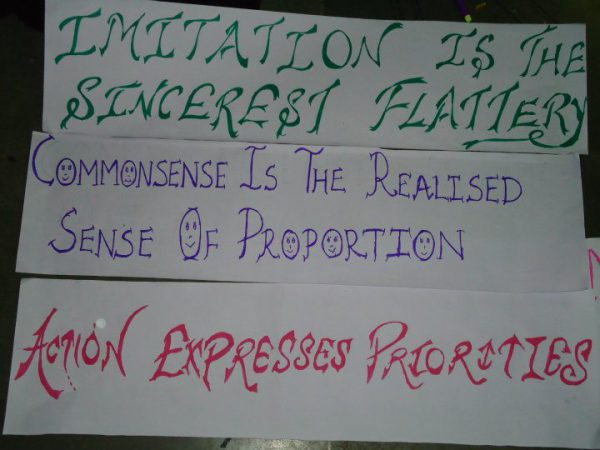 IMITATION IS THE
SINCEREST FLATTERY
COMMONSENSE IS THE REALISED
SENSE OF PROPORTION
ACTION EXPRESSES PRIORITIES